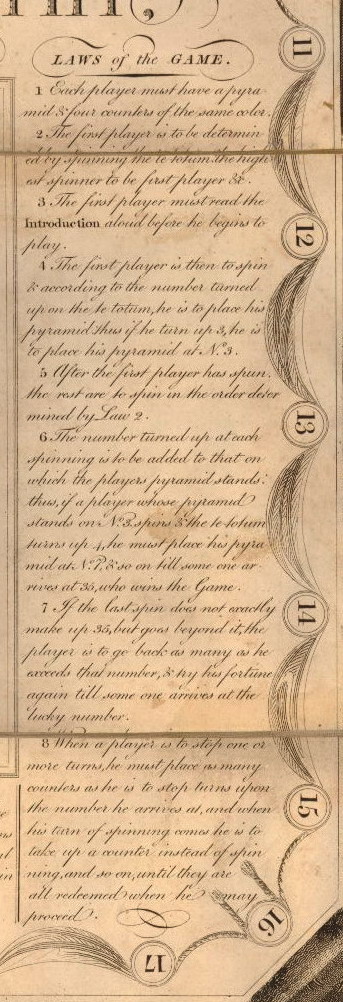 LAWS of the GAME.
1 Each player must have a pyra
mid & four counters of the same color.
2 The first player is to be determin
ed by spinning the te totum.the high
est spinner to be first player &c.
3 The first player must read the
Introduction aloud before he begins to
play.
4 The first player is then to spin
& according to the number turned
up on the te totum, he is to place his
pyramid thus if he turn up 3, he is
to place his pyramid at No. 3.
5 After the first player has spun,
the rest are to spin in the order deter
mined by Law 2.
6 The number turned up at each
spinning is to be added to that on
which the players pyramid stands:
thus, if a player whose pyramid
stands on No. 3. spins & the te totum
turns up 4, he must place his pyra
mid at No. 7, & so on till some one ar
rives at 35, who wins the Game.
7 If the last spin does not exactly
make up 35, but goes beyond it, the
player is to go back as many as he
exceeds that number, & try his fortune
again till some one arrives at the
lucky number.
8 When a player is to stop one or
more turns, he must place as many
counters as he is to stop turns upon
the number he arrives at, and when
his turn of spinning comes he is to
take up a counter instead of spin
ning, and so on, until they are
all redeemed when he may
proceed.
11
12
13
14
15
16
17